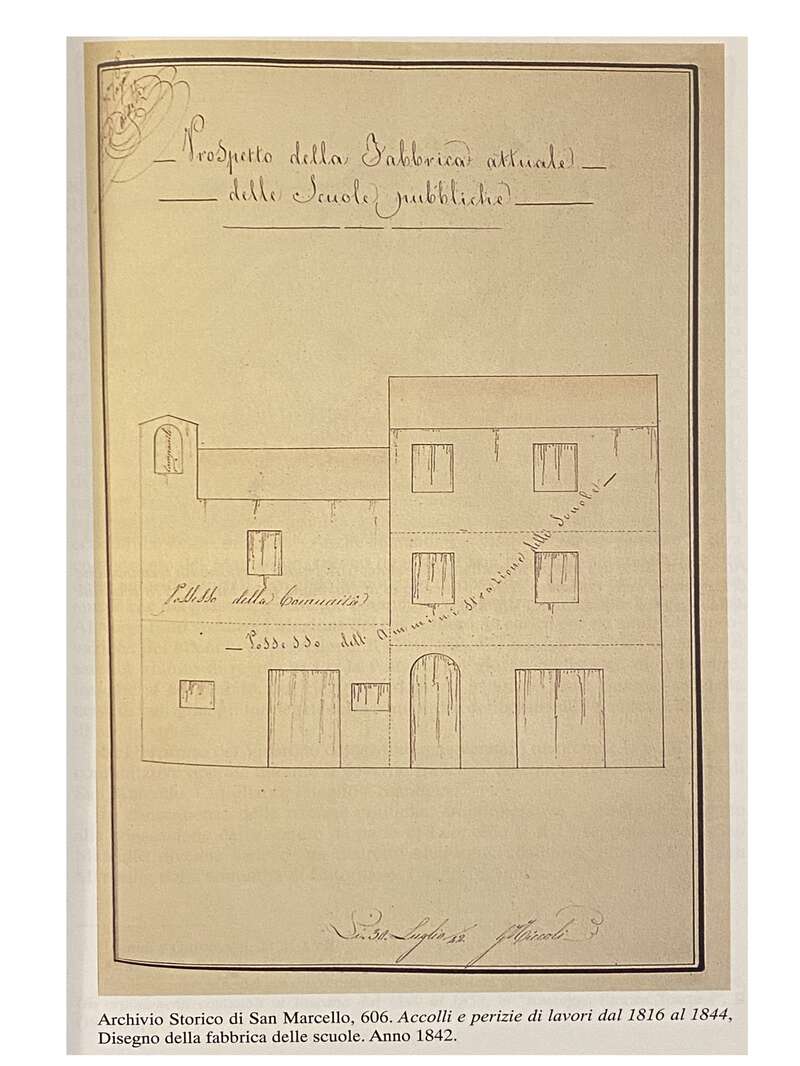 Prospetto della Fabbrica attuale
delle Scuole pubbliche
Campanile
Possesso della Comunità
Possesso dell'Amministrazione delle Scuole
Li 30. Luglio 42. G Niccoli
Archivio Storico di San Marcello, 606. Accolli e perizie di lavori dal 1816 al 1844,
Disegno della fabbrica delle scuole. Anno 1842.